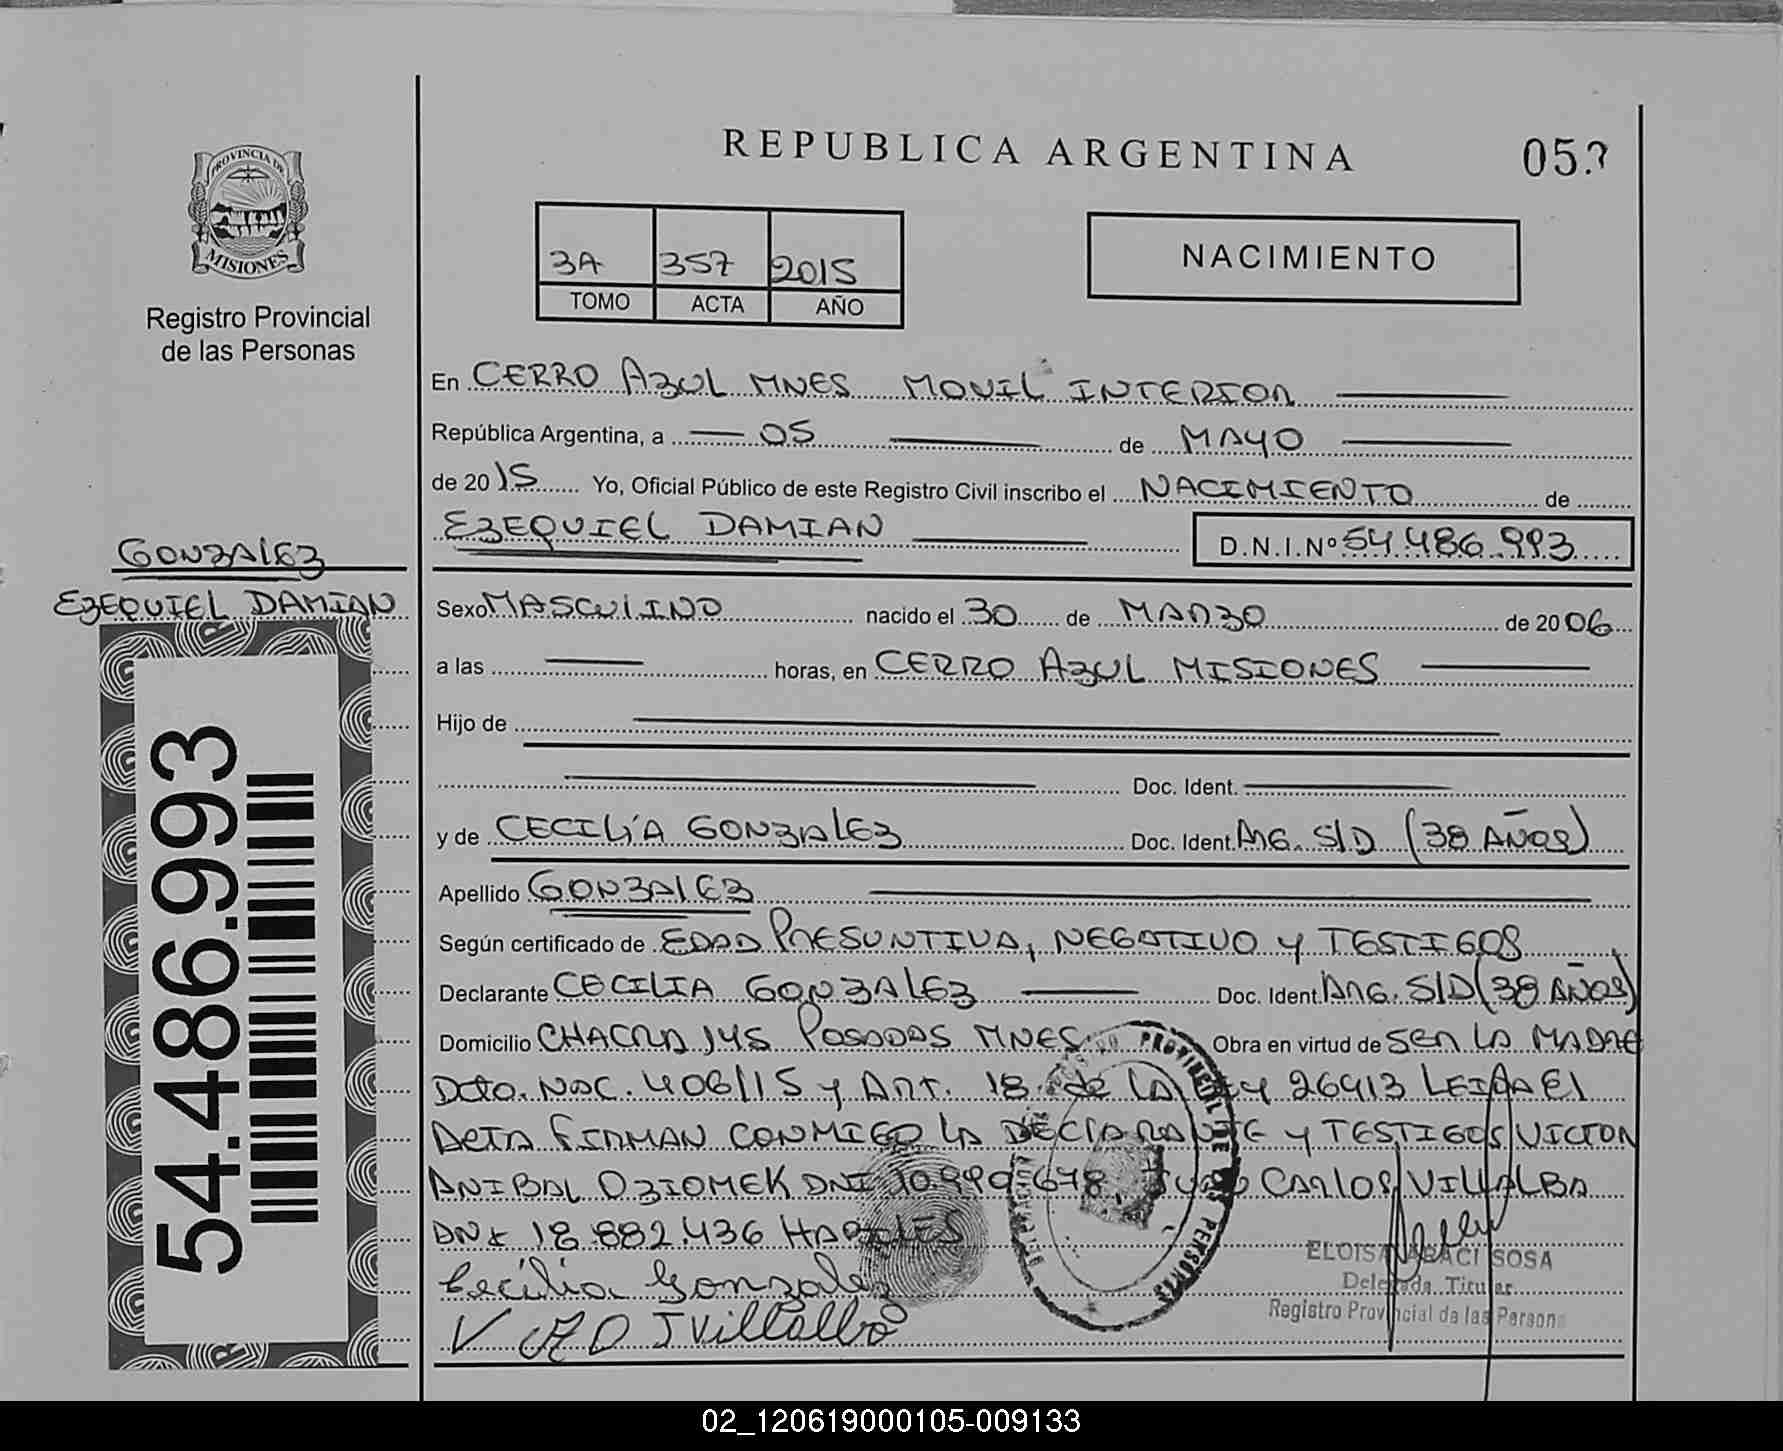 REPUBLICA ARGENTINA
PROVINCIA DE
MISIONES
Registro Provincial
de las Personas
3A 357 2015
TOMO ACTA AÑO
NACIMIENTO
En CERRO AZUL MNES MOVIL INTERIOR
República Argentina, a 05 de MAYO
de 2015 Yo, Oficial Público de este Registro Civil inscribo el NACIMIENTO de
EZEQUIEL DAMIAN
D.N.I.Nº 54.486.993
GONZALEZ
EZEQUIEL DAMIAN
54.486.993
Sexo MASCULINO nacido el 30 de MARZO de 2006
a las horas, en CERRO AZUL MISIONES
Hijo de
Doc. Ident.
y de CECILIA GONZALEZ Doc. Ident. ARG. S/D (38 AÑOS)
Apellido GONZALEZ
Según certificado de EDAD PRESUNTIVA, NEGATIVO Y TESTIGOS
Declarante CECILIA GONZALEZ Doc. Ident. ARG. S/D (38 AÑOS)
Domicilio CHACRA 145 POSADAS MNES Obra en virtud de SER LA MADRE
Dcto. NAC. 406/15 y ART. 18 de LA LEY 26413 LEIDA El
ACTA FIRMAN CONMIGO LA DECLARANTE Y TESTIGOS VICTOR
ANIBAL DZIOMEK DNI 10.990.678, CARLOS VILLALBA
DNI 18.882.436 HABILES
Cecilia Gonzalez
V A D J Villalba
ELOISA SOSA
Delegada Titular
Registro Provincial de las Person
02_120619000105-009133